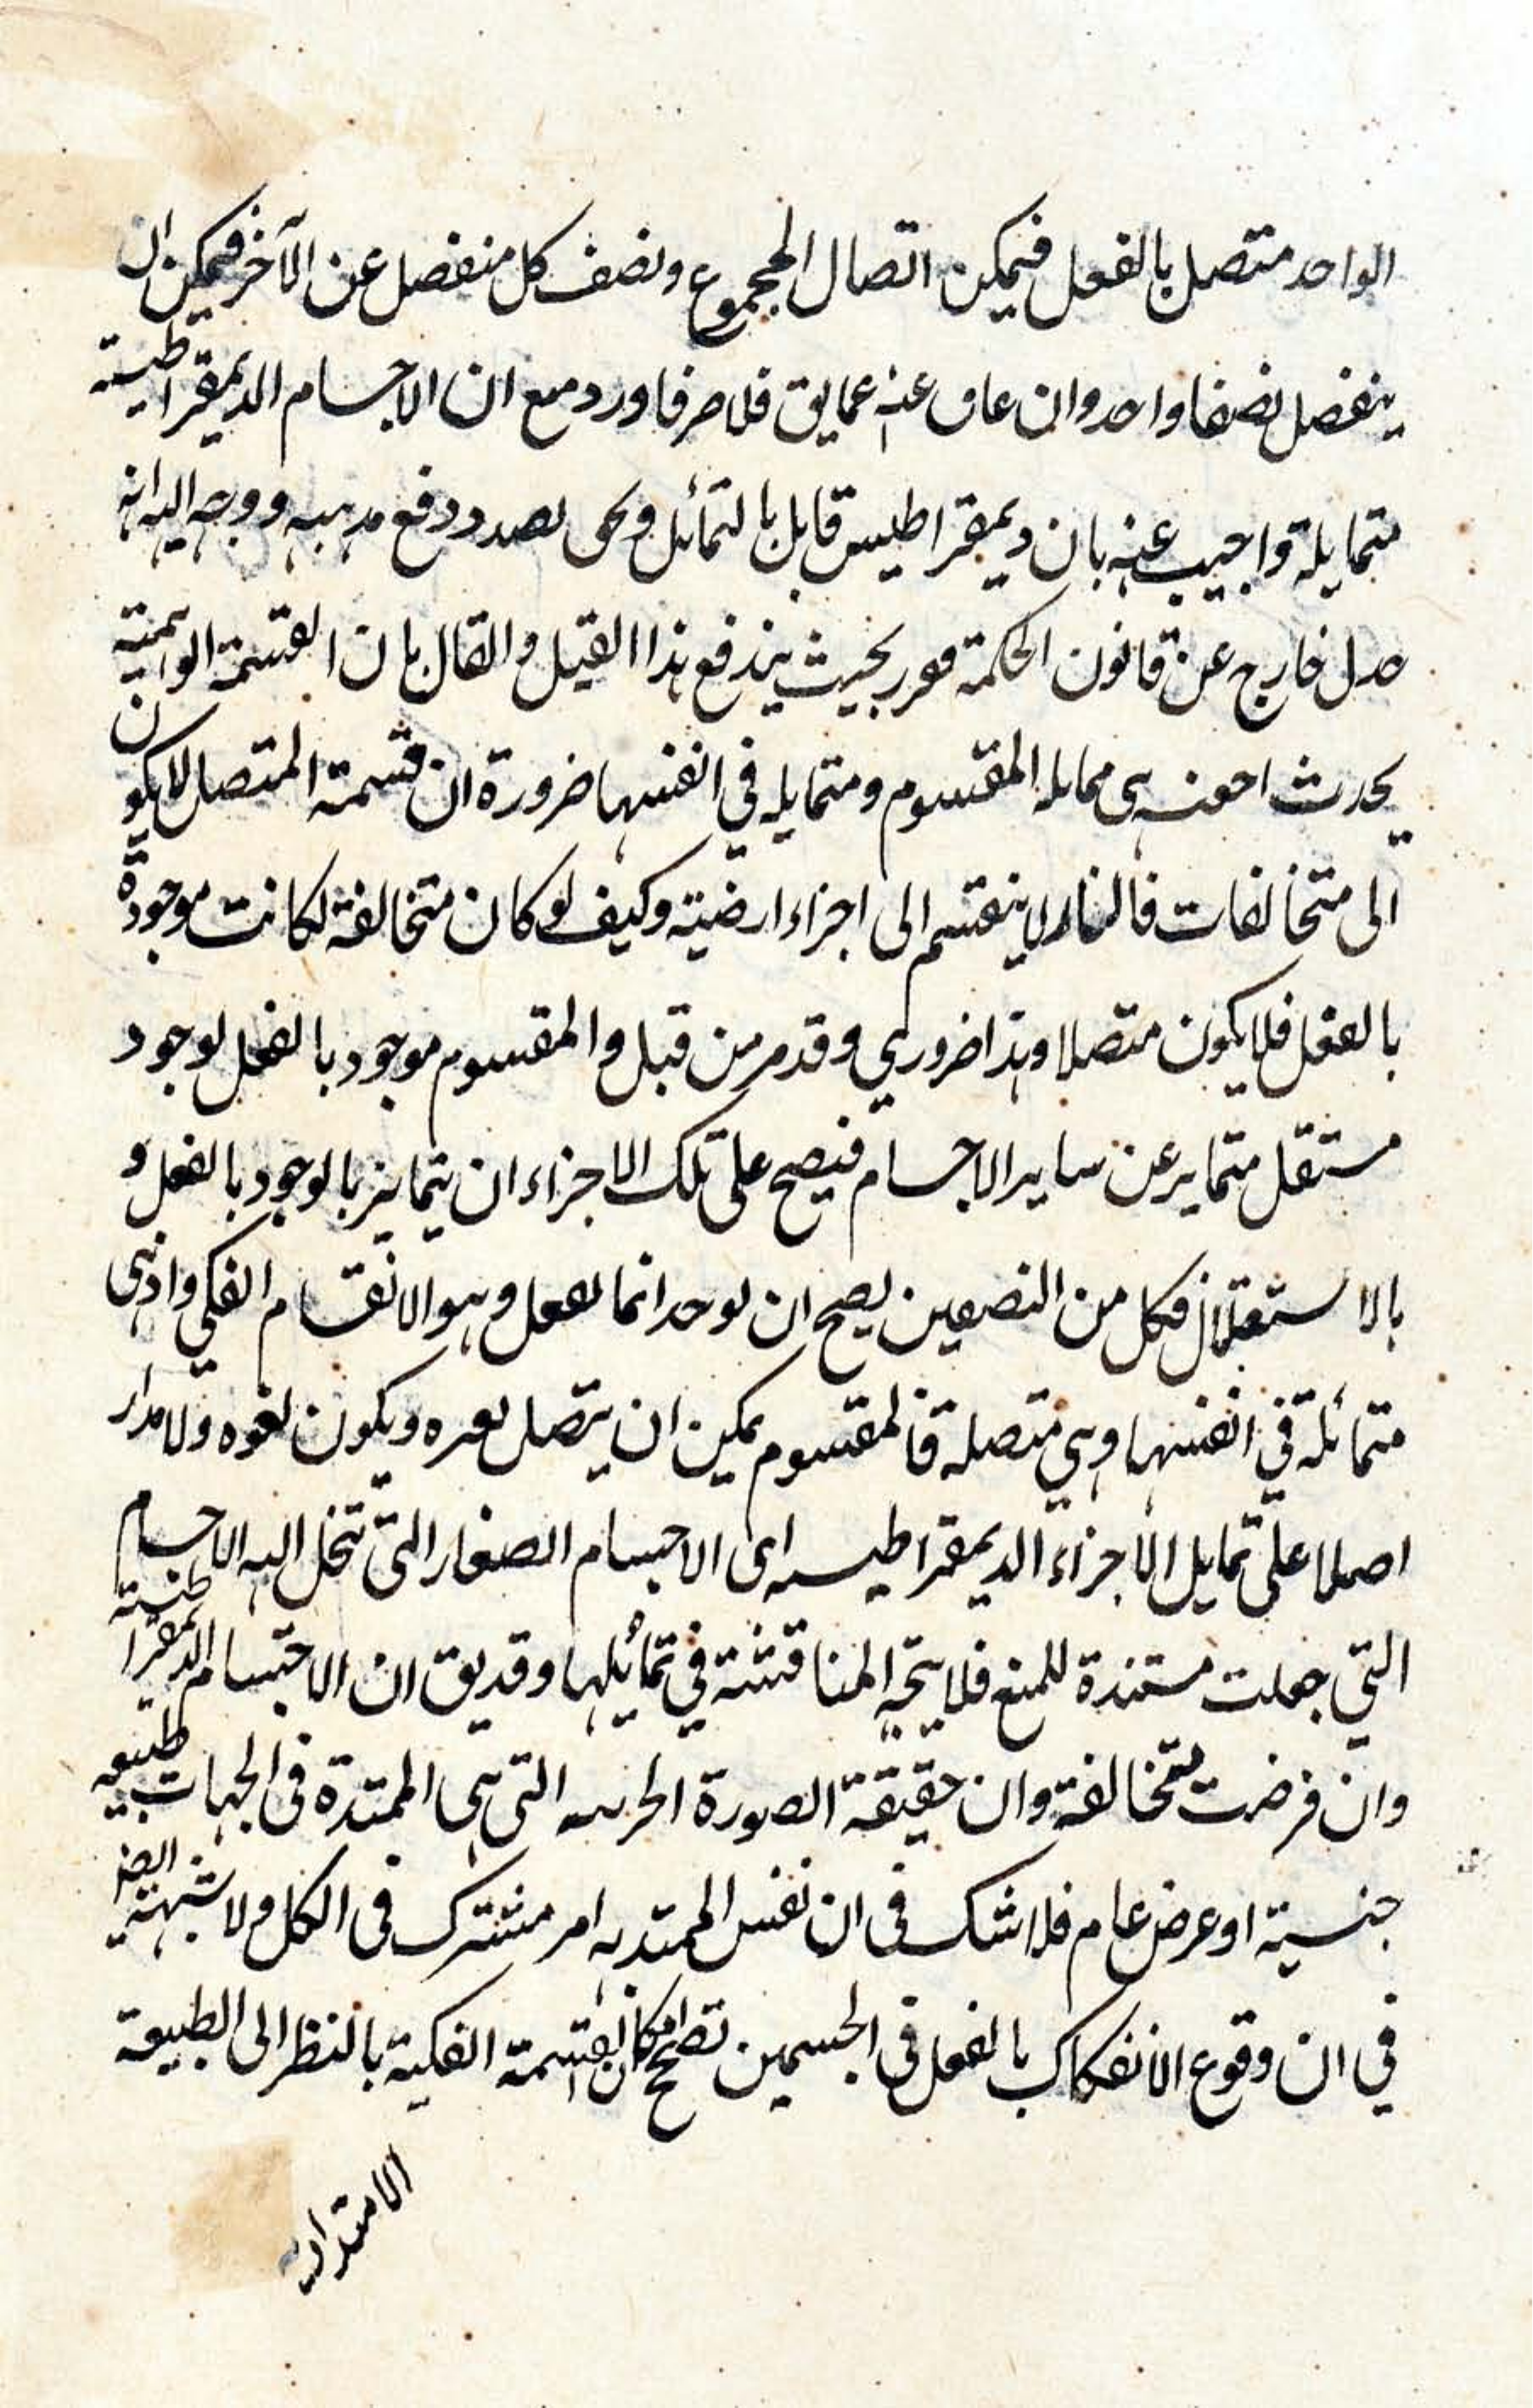 الواحد متصل بالفعل فيمكن اتصال المجموع ونصف كل منفصل عن الآخر فيمكن ان
ينفصل نصفا واحد وان عاق عنه عايق فلا صرفا ورد منع ان الاجسام الديمقراطيسية
متمايلة واجيب عنه بان ديمقراطيس قايل بالتمائل ونحن بصدد دفع مذهبه ووجه اليه انه
جدل خارج عن قانون الحكمة فقرر بحيث يندفع هذا القيل والقال بان القسمة الوهمية
يحدث هي المقسوم ومتمايله في انفسها ضرورة ان قسمة المتصل لا يكون
الى متخالفات فالنار لا ينقسم الى اجزاء ارضية وكيف لو كان متخالفة لكانت موجودة
بالفعل فلا يكون متصلا وهذا ضروري وقد مر من قبل والمقسوم موجود بالفعل لوجود
مستقل متمايز عن ساير الاجسام فيصح على تلك الاجزاء ان يتمايز بالوجود بالفعل و
بالاستقلال فكل من النصفين يصح ان يوجد انما بالفعل وهو الانقسام الفكي واذ هي
متمائلة في انفسها وهي متصلة فالمقسوم يمكن ان يتصل بغيره ويكون ولا مدار
اصلا على تمايل الاجزاء الديمقراطيسه اى الاجسام الصغار التي تنحل اليه الاجسام
التي جعلت مستندة للمنع فلا يتجه المناقشة في تمائلها وقد يق ان الاجسام الديمقراطيسة
وان فرضت متخالفة وان حقيقة الصورة الجرميه التي هي الممتدة في الجهات طبيعه
جنسية او عرض عام فلا شك في ان نفس الممتد به امر مشترك في الكل ولا شبهة
في ان وقوع الانفكاك بالفعل في الجسمين تصحح امكان القسمة الفكية بالنظر الى الطبيعة
الامتدادية